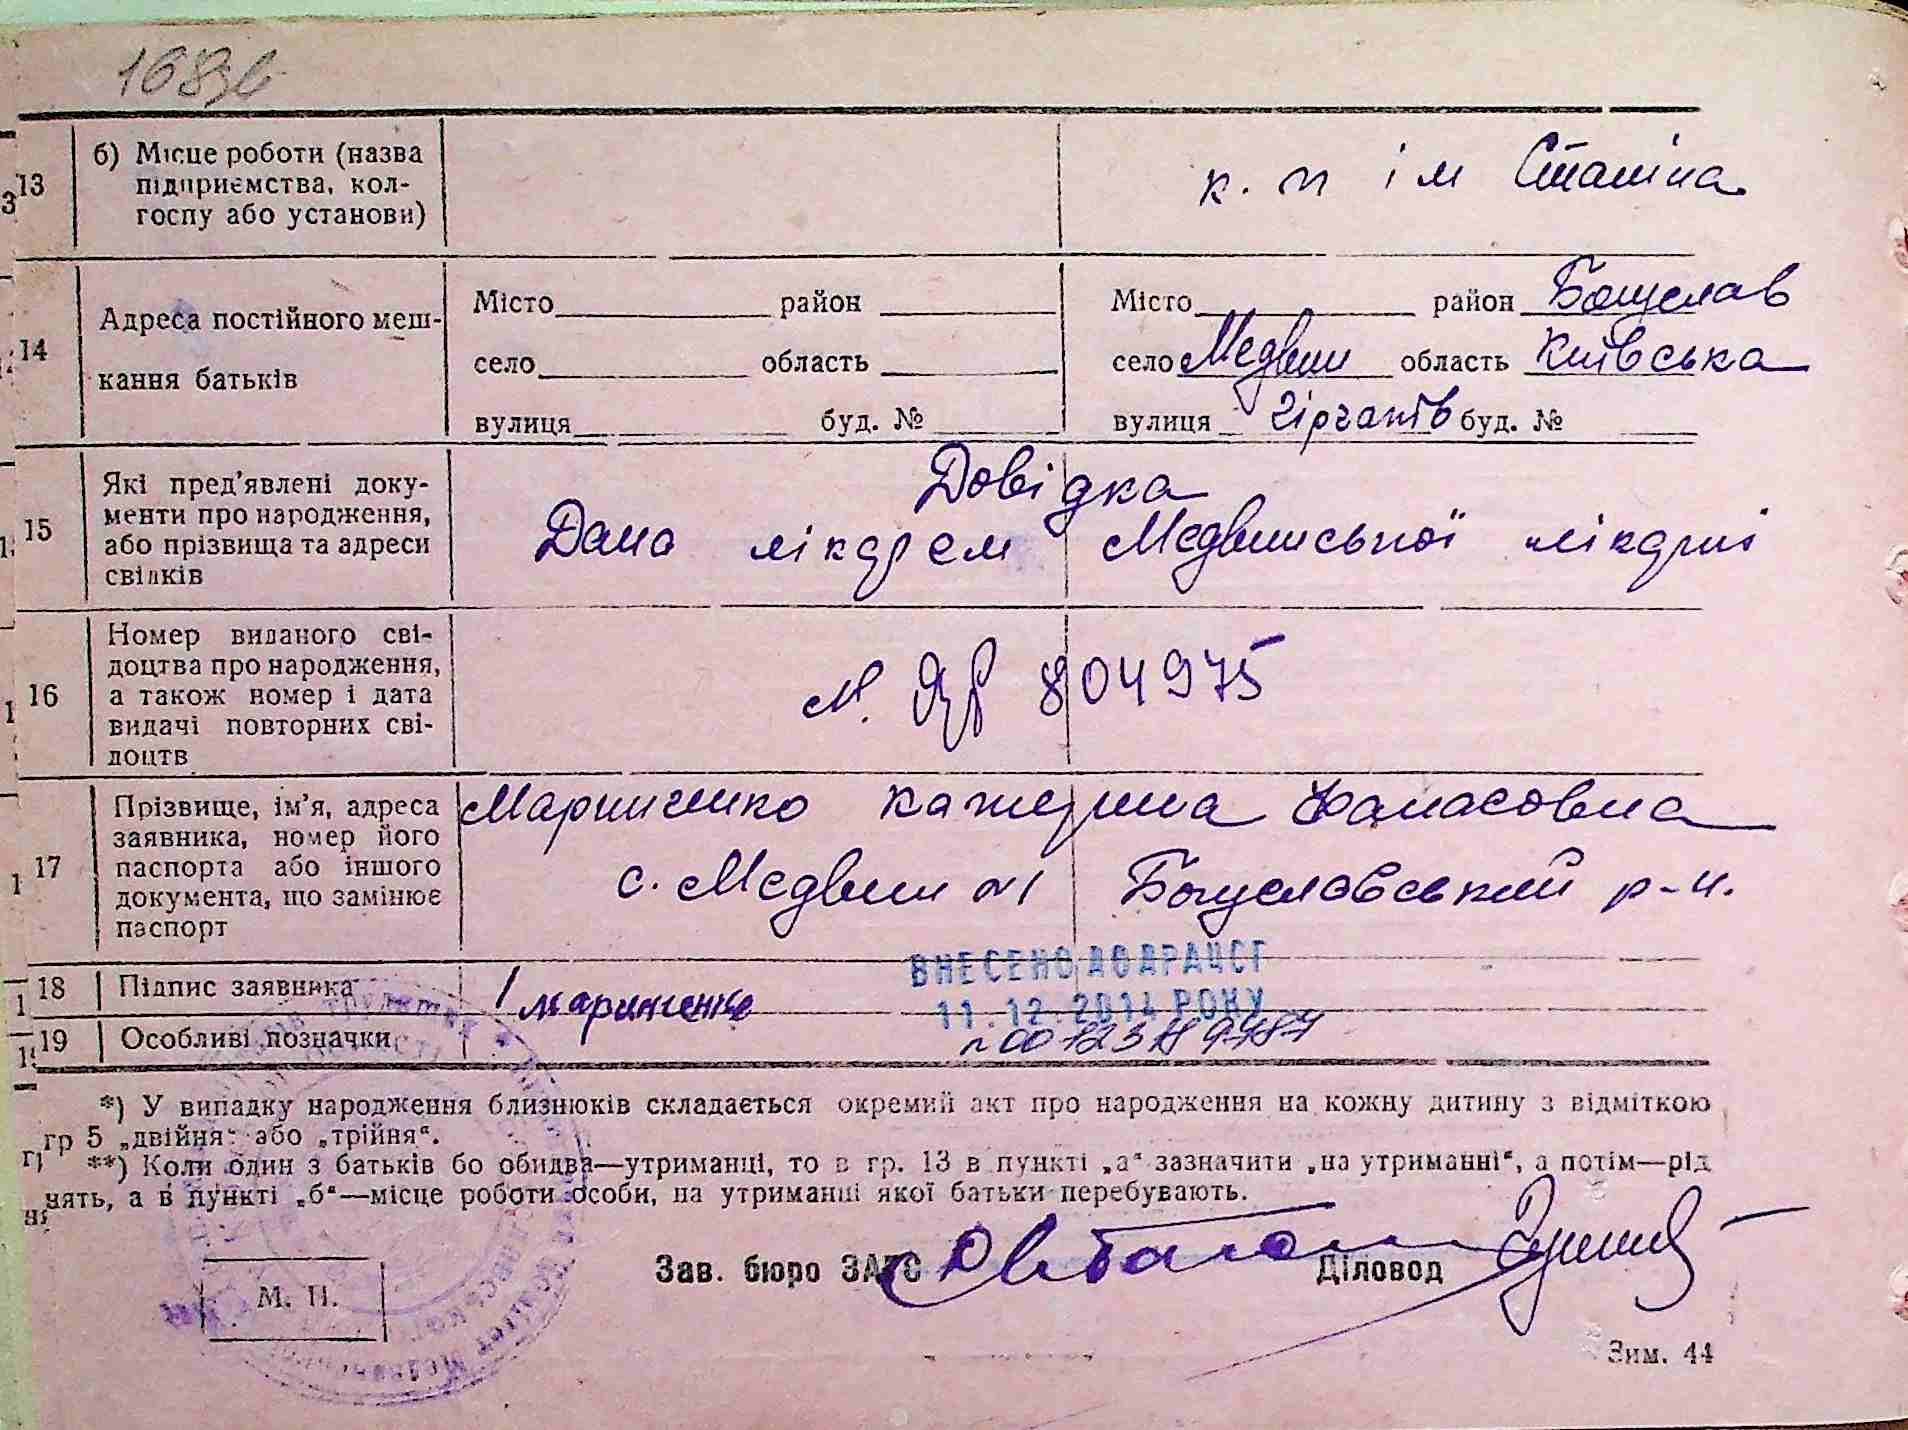 168зв
13
б) Місце роботи (назва
підприємства, кол-
госпу або установи)
к. п ім Сталіна
14
Адреса постійного меш-
кання батьків
Місто район
село область
вулиця буд. №
Місто район Богуслав
село Медвин область Київська
вулиця буд. №
15
Які пред'явлені доку-
менти про народження,
або прізвища та адреси
свідків
Довідка
Дана лікарем Медвинської лікарні
16
Номер виданого сві-
доцтва про народження,
а також номер і дата
видачі повторних сві-
доцтв
№. 804975
17
Прізвище, ім'я, адреса
заявника, номер його
паспорта або іншого
документа, що замінює
паспорт
Маринченко Катерина Панасовна
с. Медвин №1 Богуславський р-н.
18
Підпис заявника
Маринченко
ВНЕСЕНО ДО ДРАЦСГ
11.12.2014 РОКУ
19
Особливі позначки
*) У випадку народження близнюків складається окремий акт про народження на кожну дитину з відміткою
гр 5 „двійня“ або „трійня“.
**) Коли один з батьків бо обидва—утриманці, то в гр. 13 в пункті „а“ зазначити „на утриманні“, а потім—рід
нять, а в пункті „б“—місце роботи особи, на утриманні якої батьки перебувають.
Зав. бюро ЗАГС
Діловод
М. П.
Зим. 44